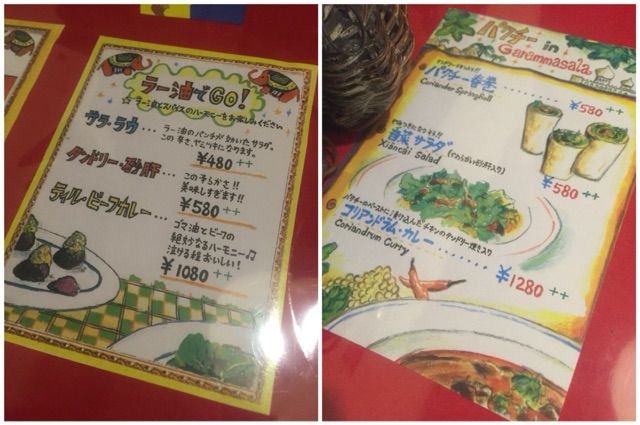 ラー油でGO!
☆ラー油とスパイスのハーモニーをお楽しみください
サラ・ラウ...ラー油のパンチが効いたサラダ。
この辛さ、ヤミツキになります。
¥480 ++
タンドリー・砂肝...
この柔らかさ!!
美味しすぎます!!
¥580 ++
ティル・ビーフカレー...
ゴマ油とビーフの
絶妙なるハーモニー♫
泣ける程おいしい!
¥1080 ++
パクチー in
Garammasala
パクチー春巻
Coriander Springroll
¥580 ++
サラダ
Xiancai Salad
¥580 ++
パクチーのペーストに漬け込んだチキンのタンドリー焼き入り
コリアンドラム・カレー
Coriandrum Curry
¥1280 ++